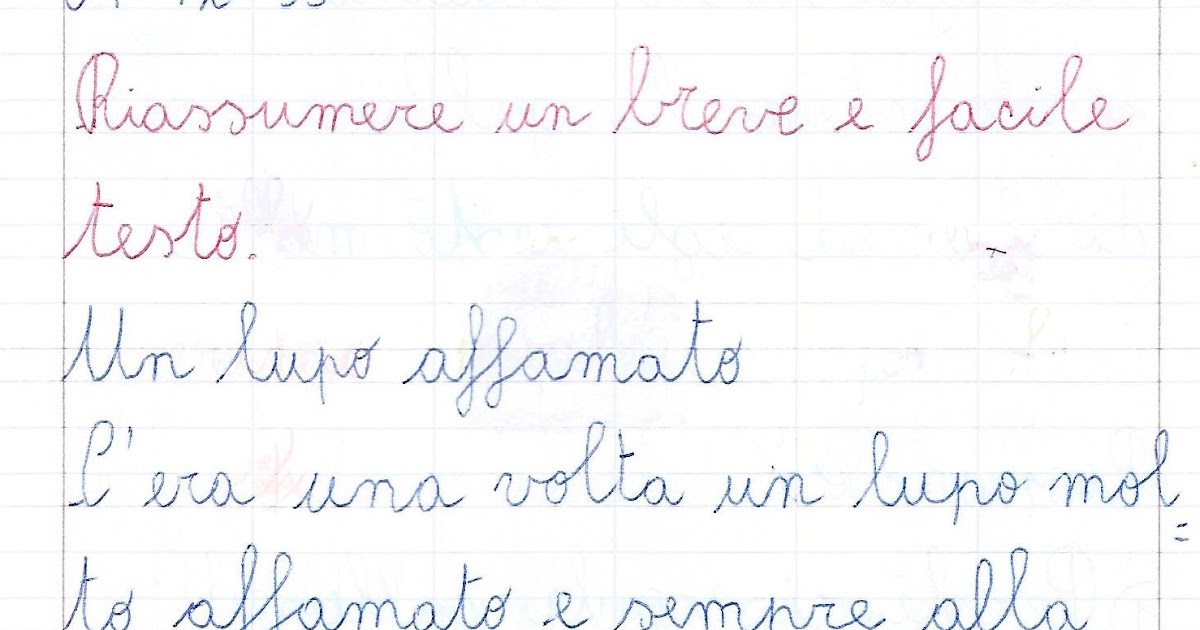 Riassumere un breve e facile
testo.
Un lupo affamato
C'era una volta un lupo mol=
to affamato e sempre alla